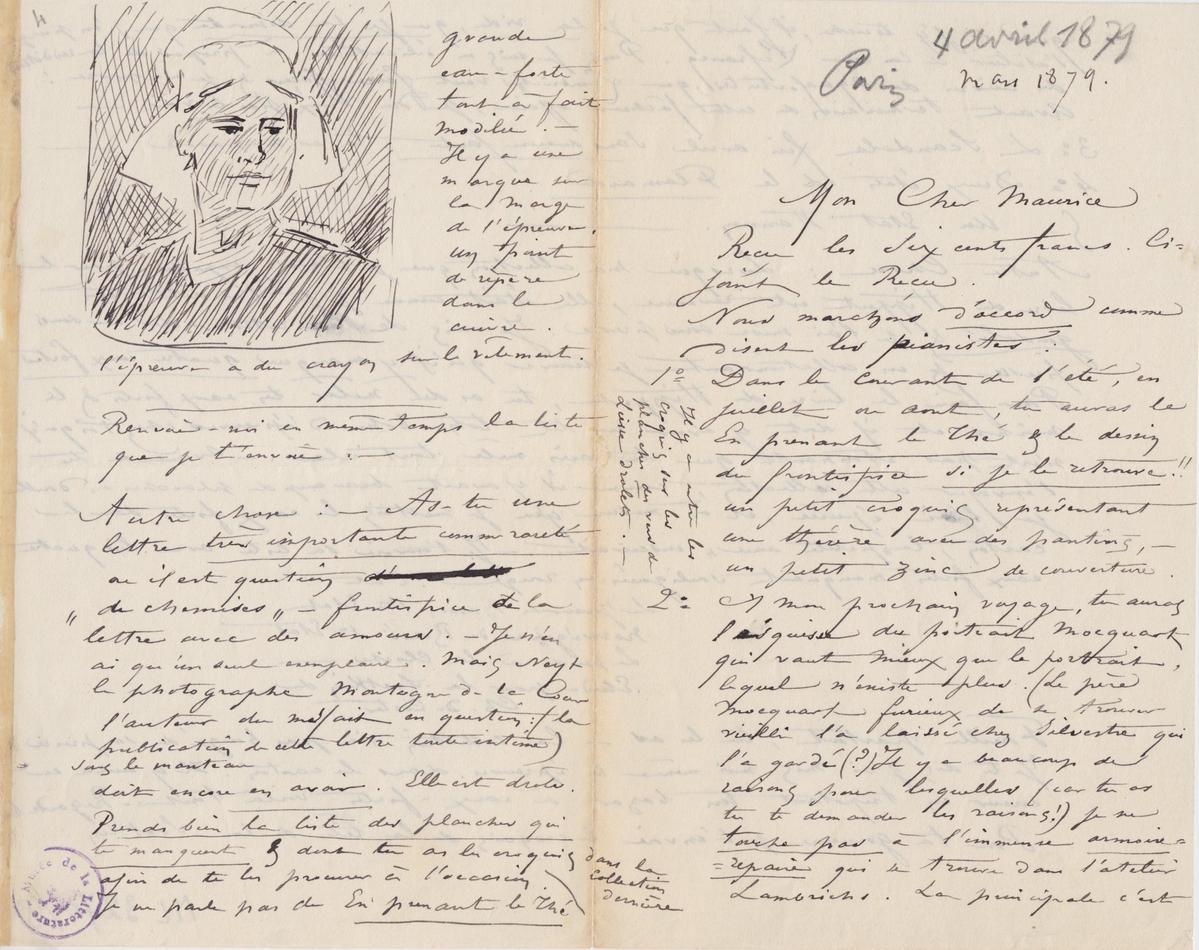 4 avril 1879
Paris
mars 1879.
Mon Cher Maurice
Reçu les Six cents francs. Ci-
joint le Reçu.
Nous marchons d'accord comme
disent les pianistes :
1º Dans le courant de l'été, en
juillet ou aout, tu auras le
En prenant le Thé & le dessin
du frontispice si je le retrouve!!
un petit croquis représentant
une théière avec des pantins, —
un petit zinc de couverture.
2º A mon prochain voyage, tu auras
l'esquisse du portrait Mocquart
qui vaut mieux que le portrait,
lequel n'existe plus. (Le père
Mocquart furieux de se trouver
vieilli l'a laissé chez Silvestre qui
l'a gardé (?) Il y a beaucoup de
raisons pour lesquelles (car tu as
tu te demander les raisons!) je ne
touche pas à l'immense armoire=
=repaire qui se trouve dans l'atelier
Lambrichs. La principale c'est
Il y a outre les
croquis sur les
planches des vues de
drolets. —
4
grande
eau-forte
tout à fait
modifié. —
Il y a une
marque sur
la marge
de l'épreuve.
un point
de repère
dans le
cuivre.
l'épreuve a du crayon sur le vêtement.
Renvoie-moi en même temps la liste
que je t'envoie : —
Autre chose : — As-tu une
lettre très importante comme rareté
ou il est question
" de chemises " — frontispice de la
lettre avec des amours. — Je n'en
ai qu'un seul exemplaire. Mais Neyt
le photographe Montagne de la Cour
l'auteur du méfait en question : (la
publication de cette lettre toute intime)
sous le manteau
doit encore en avoir. Elle est drôle.
Prends bien la liste des planches qui
te manquent & dont tu as les croquis dans la
collection
dernière
afin de te les procurer à l'occasion.
Je ne parle pas de En prenant le Thé
Musée de la Littérature